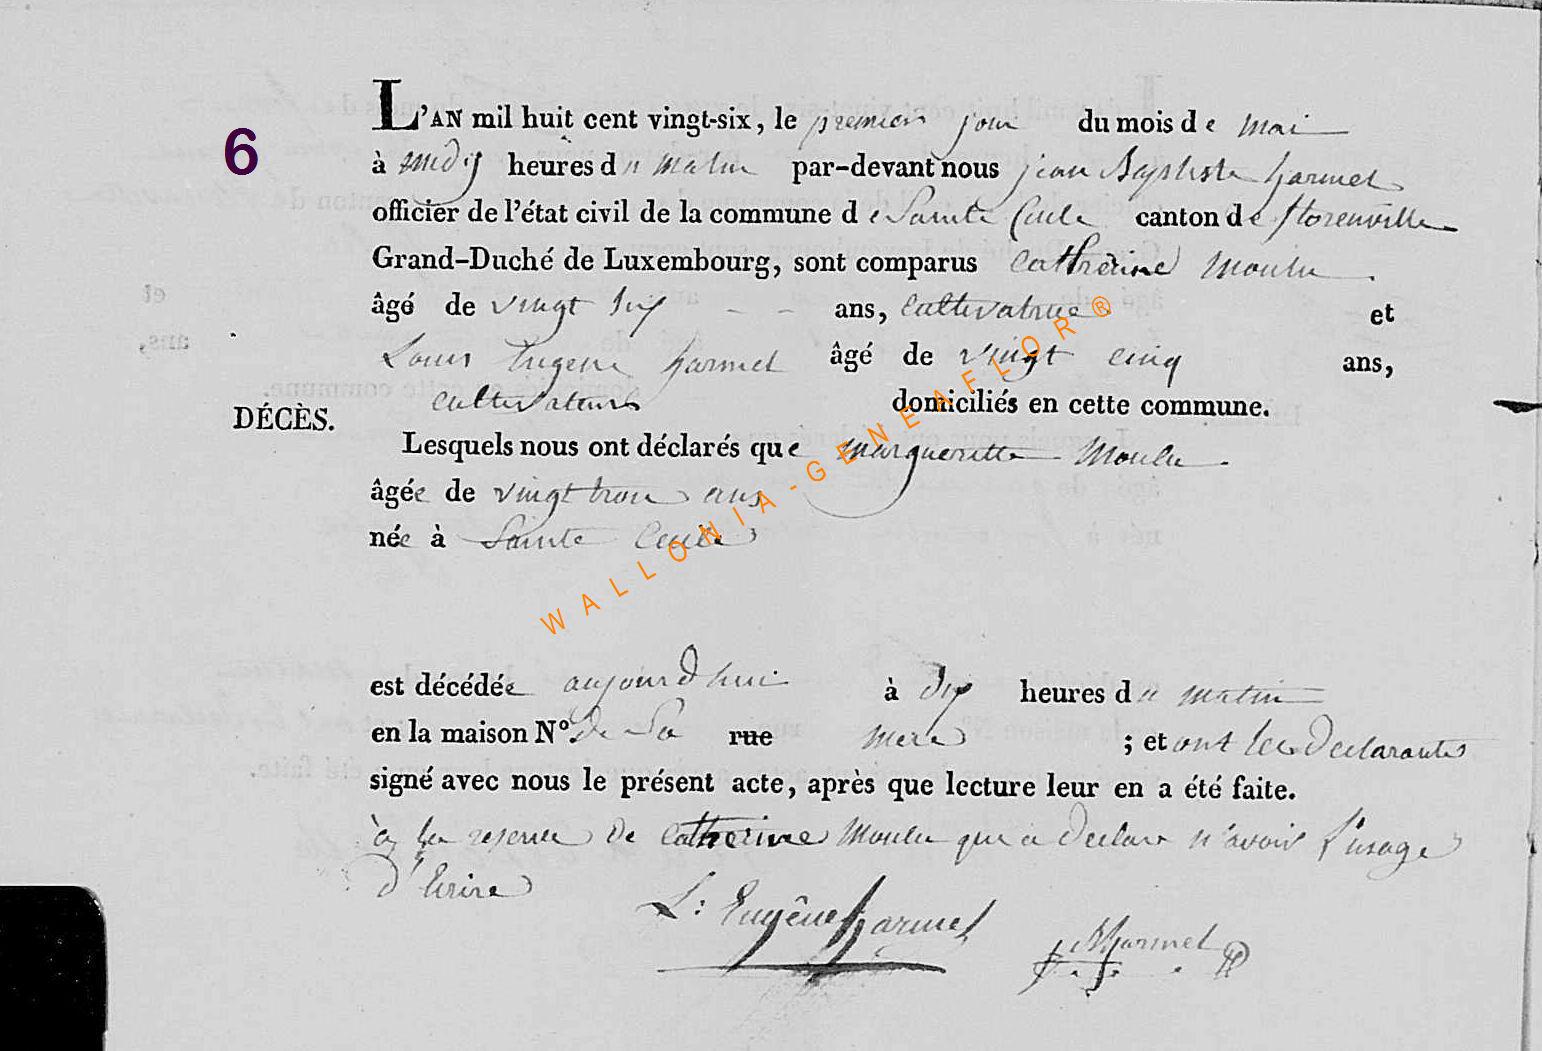 6
L'AN mil huit cent vingt-six, le premier jour du mois de mai
à midy heures du matin par-devant nous jean Baptiste harmel
officier de l'état civil de la commune de Sainte Cecile canton de florenville
Grand-Duché de Luxembourg, sont comparus Catherine Moulu
âgé de vingt six ans, cultivatrice et
Louis Eugene harmel âgé de vingt cinq ans,
cultivateurs domiciliés en cette commune.
DÉCÈS.
Lesquels nous ont déclarés que marguerite Moulu
âgée de vingt trois ans
née à Sainte Cecile
WALLONIA-GENEAFLOR®
est décédée aujourd'hui à dix heures du matin
en la maison N°. De Sa rue mere ; et ont les declarants
signé avec nous le présent acte, après que lecture leur en a été faite.
à la reserve de Catherine Moulu qui a declare n'avoir l'usage
d'Ecrire
L: Eugêne harmel
JBharmel